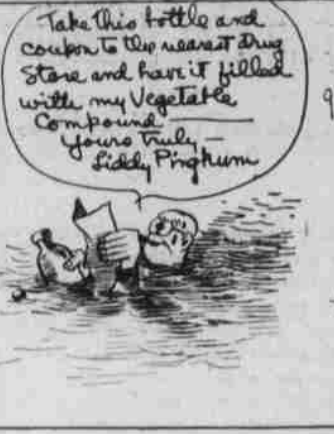 Take this bottle and
coupon to the nearest Drug
Store and have it filled
with my Vegetable
Compound
Yours truly —
Liddy Pinghum